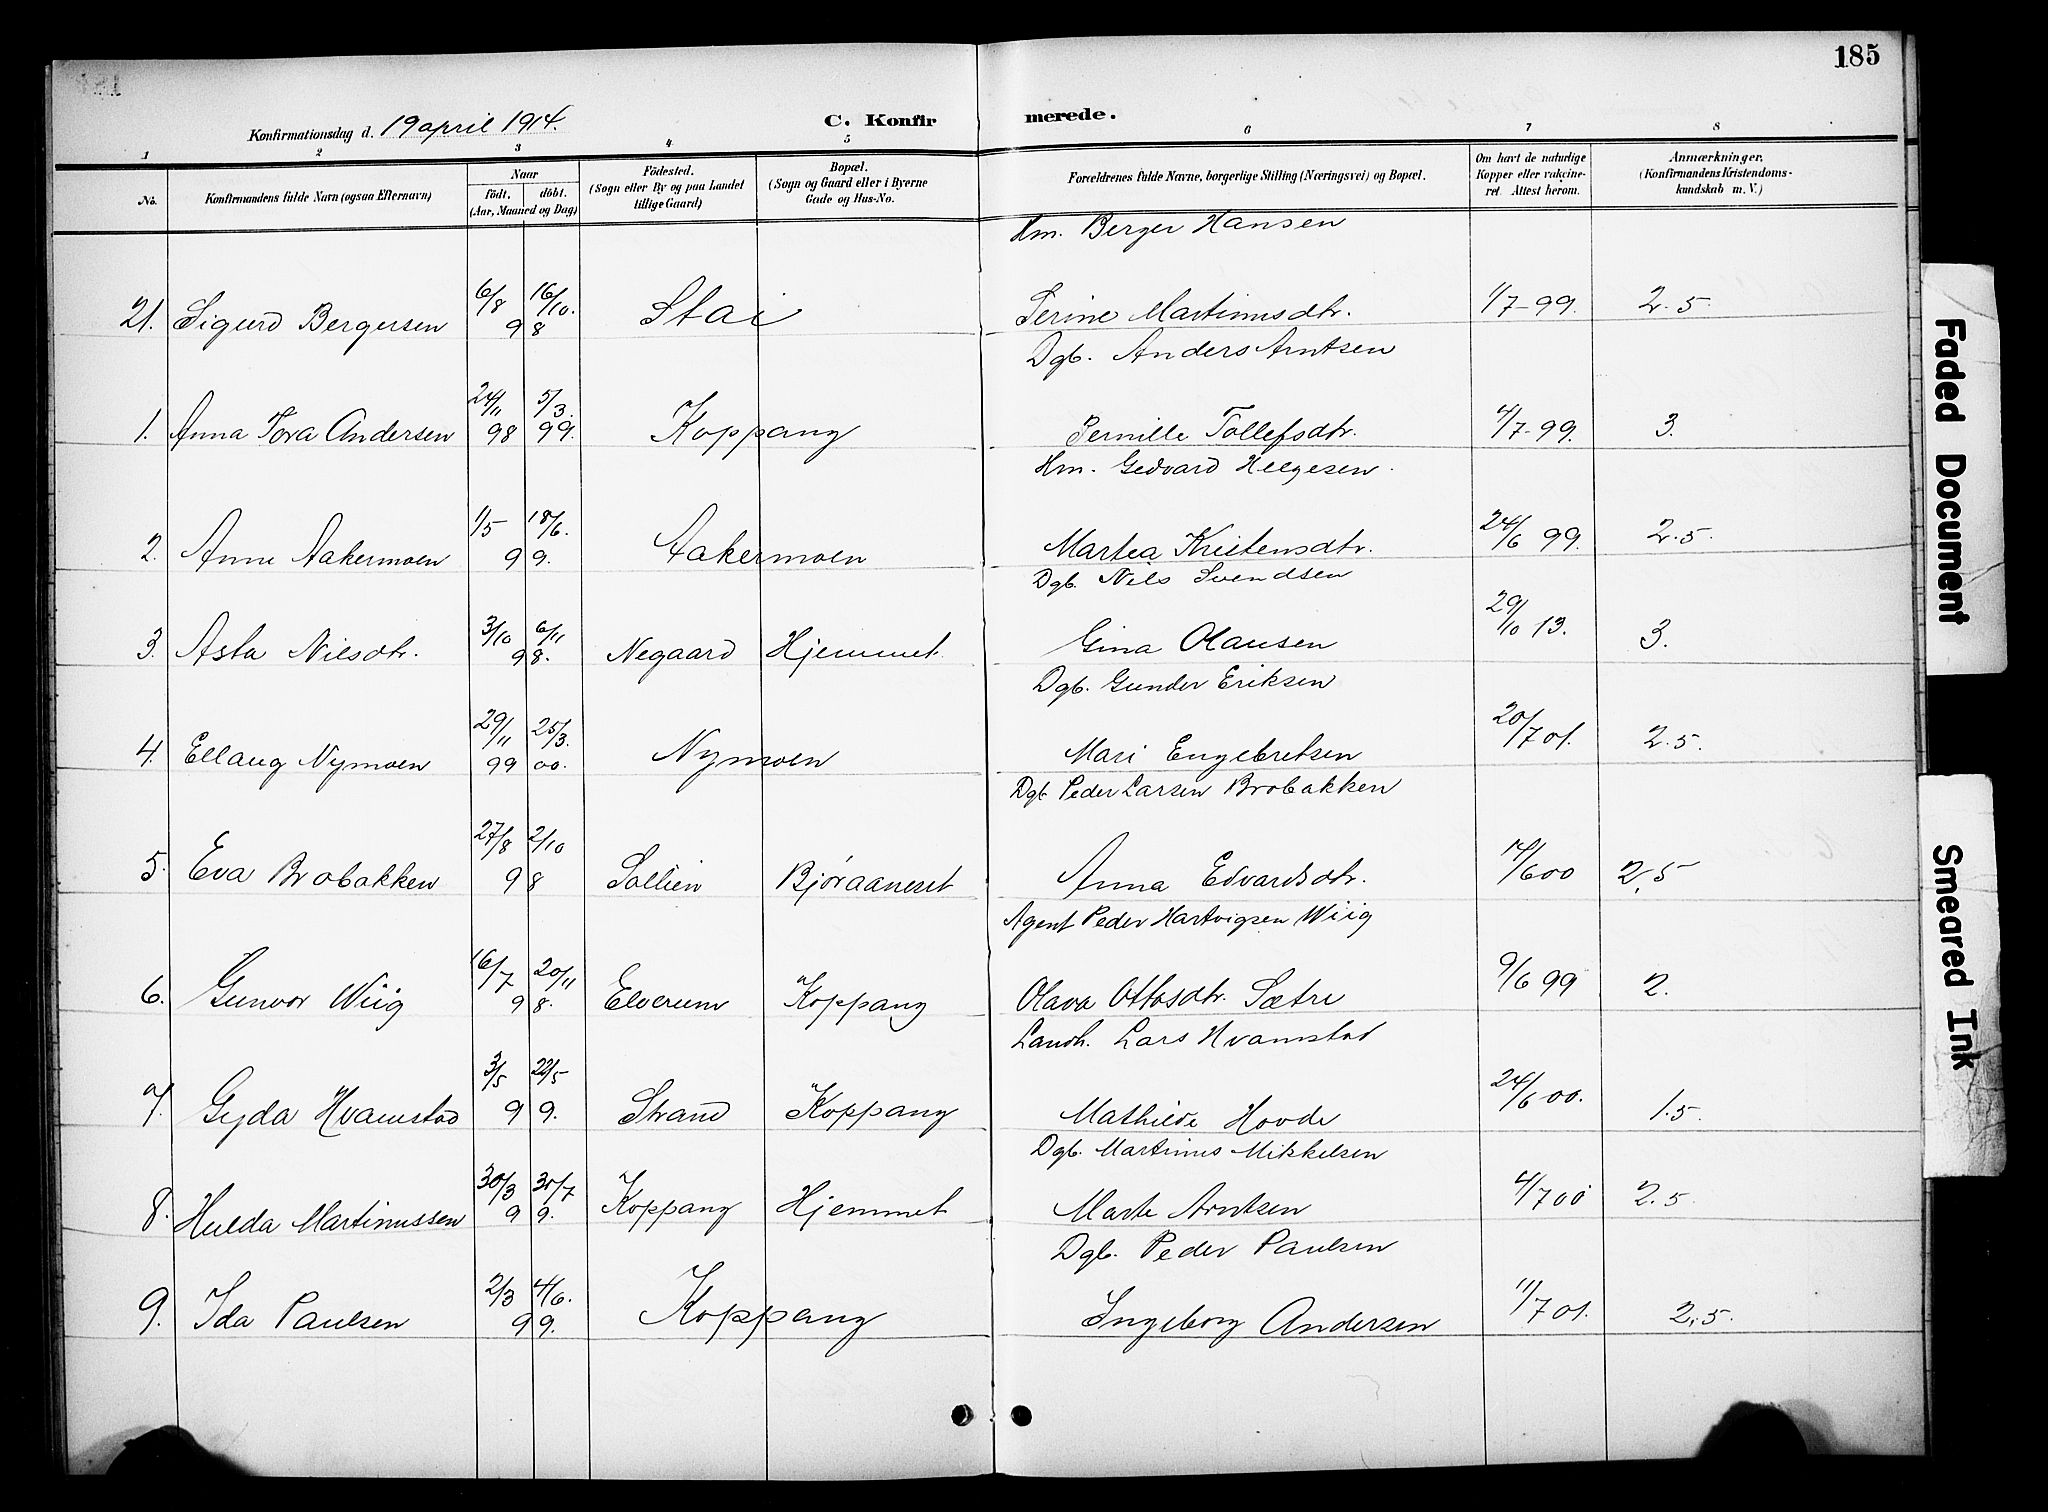 185
Konfirmationsdag d. 19 april 1914.
C. Konfirmerede.
1 2 3 4 5 6 7 8
No.
Konfirmandens fulde Navn (ogsaa Efternavn)
Naar
født, døbt.
(Aar, Maaned og Dag)
Fødested.
(Sogn eller By og paa Landet
tillige Gaard)
Bopæl.
(Sogn og Gaard eller i Byerne
Gade og Hus-No.
Forældrenes fulde Navne, borgerlige Stilling (Næringsvei) og Bopæl.
Om havt de naturlige
Kopper eller vakcine-
ret. Attest herom.
Anmærkninger.
(Konfirmandens Kristendoms-
kundskab m. V.)
Hm. Berger Hansen
21. Sigurd Bergersen 6/8 16/10. 98 Stai Serine Martinusdtr. 1/7-99. 2.5.
Dgb. Anders Arntsen
1. Anna Tora Andersen 24/11 98 5/3. 99. Koppang Pernille Tollefsdtr. 4/7-99. 3.
Hm. Gedvard Helgesen.
2. Anne Aakermoen 1/5 18/6. 99. Aakermoen Martea Kristensdtr. 24/6 99. 2.5.
Dgb. Nils Svendsen
3. Asta Nilsdtr. 3/10 6/11 98. Negaard Hjemmet Gina Olausen 29/10 13. 3.
Dgb. Gunder Eriksen
4. Ellaug Nymoen 29/11 99 25/3. 00. Nymoen Mari Engebretsen 20/7 01. 2.5.
Dgb Peder Larsen Brobakken
5. Eva Brobakken 27/8 2/10 98 Sollien Bjøraaneset Anna Edvardsdtr. 14/6 00 2,5
Agent Peder Hartvigsen Wiig
6. Gunvor Wiig 16/7 20/11 98. Elverum Koppang Olava Ottosdtr. Sætre 9/6 99 2.
Landh. Lars Hvamstad
7. Gyda Hvamstad 3/5 22/5 99. Strand Koppang Mathilde Hovde 24/6 00. 1.5.
Dgb. Martinus Mikkelsen
8. Hulda Martinussen 30/3 30/7 99. Koppang Hjemmet Marte Arntsen 4/7 00 2.5.
Dgb. Peder Paulsen
9. Ida Paulsen 2/3 4/6. 99. Koppang Ingeborg Andersen 11/7 01. 2.5.
Faded Document
Smeared Ink